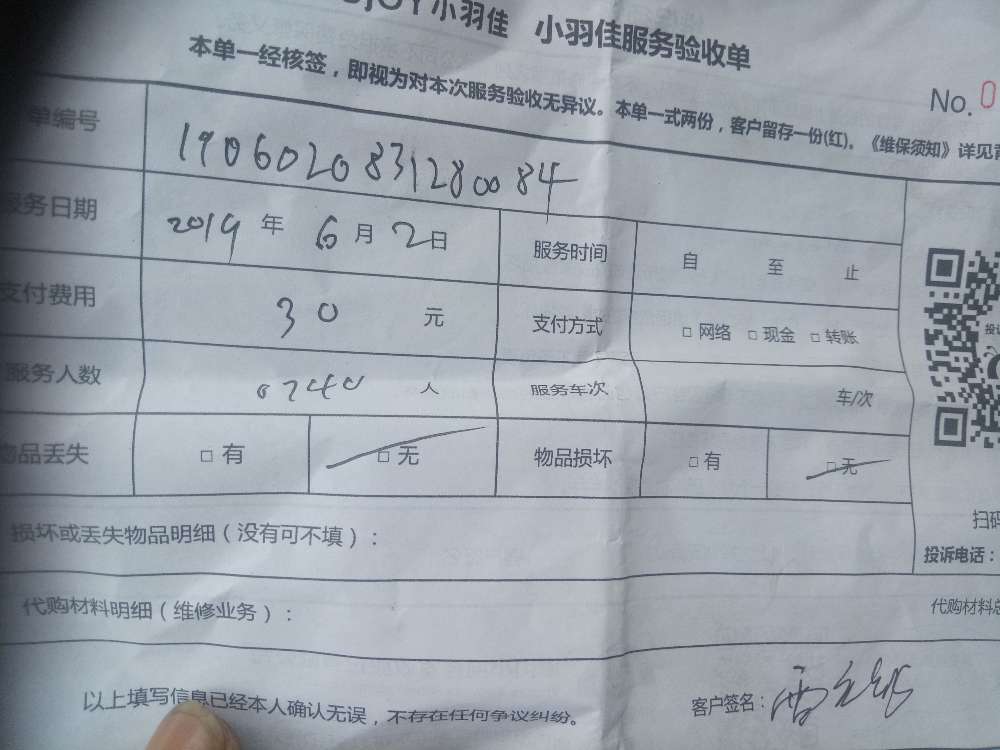 小羽佳 小羽佳服务验收单
本单一经核签，即视为对本次服务验收无异议。本单一式两份，客户留存一份(红)。《维保须知》详见背
No. 0
单编号 1906020831280084
服务日期 2019 年 6 月 2 日 服务时间 自 至 止
支付费用 30 元 支付方式 □ 网络 □ 现金 □ 转账
服务人数 人 服务车次 车/次
物品丢失 □ 有 □ 无 物品损坏 □ 有 □ 无
损坏或丢失物品明细（没有可不填）：
扫码
投诉电话：
代购材料明细（维修业务）： 代购材料总
以上填写信息已经本人确认无误，不存在任何争议纠纷。 客户签名：